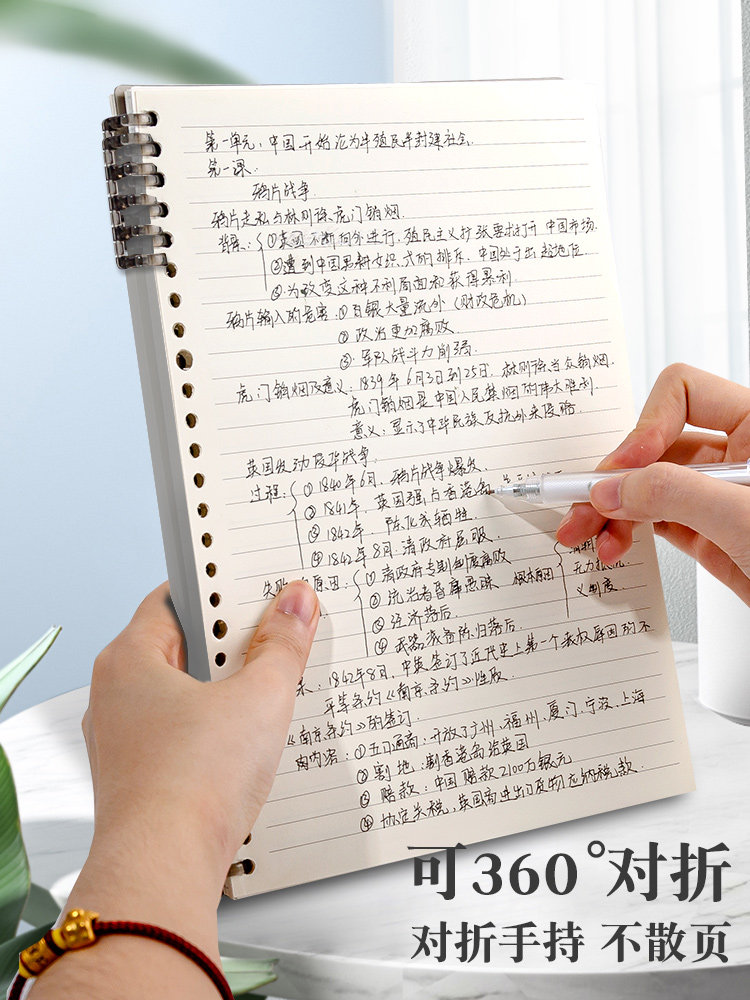 第一单元:中国开始沦为半殖民半封建社会
第一课:
鸦片战争
鸦片走私与林则徐虎门销烟.
背景:①英国不断向外进行,殖民主义扩张要求打开中国市场.
②遭到中国男耕女织式的排斥,中国处于出超地位.
③为改变这种不利局面和获得暴利.
鸦片输入的危害:①白银大量流外(财政危机)
②政治更加腐败
③军队战斗力削弱.
虎门销烟及意义:1839年6月3日到25日,林则徐当众销烟.
虎门销烟是中国人民禁烟的伟大胜利
意义:显示了中华民族反抗外来侵略
英国发动侵华战争
过程:①1840年6月,鸦片战争爆发
②1841年,英国强占香港岛
③1842年,陈化成牺牲.
④1842年8月.清政府屈服.
失败 原因:①清政府专制制度腐败 根本原因
②统治者昏庸愚昧 无力抵
③经济落后. 义制度
④武器装备陈旧落后.
1842年8月,中英签订了近代史上第一个丧权辱国的不
平等条约《南京条约》
《南京条约》的签订
内容:①五口通商:开放了广州,福州,厦门,宁波,上海
②割地:割香港岛给英国
③赔款:中国赔款2100万银元
④协定关税,英国商进出口货物应纳税款.
可360°对折
对折手持 不散页